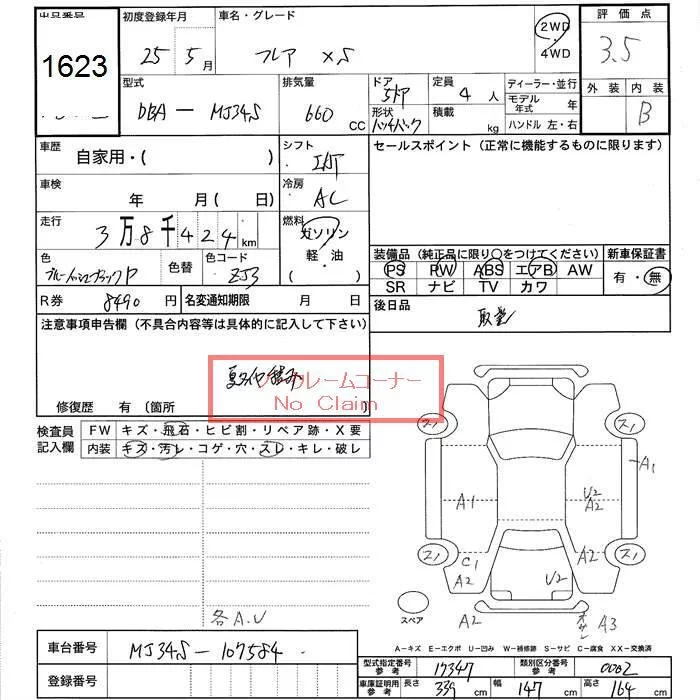 出品番号 初度登録年月 車名・グレード 評価点
1623 25 5月 フレア XS 2WD・4WD 3.5
型式 排気量 ドア 定員 ディーラー・並行 外装 内装
DBA-MJ34S 660 CC 5ドア 4人 モデル年式 年 B
形状 積載 ハンドル 左・右
ハッチバック kg
車歴 自家用・( ) シフト IAT セールスポイント(正常に機能するものに限ります)
車検 年 月( 日) 冷房 AC
走行 3万8千424km 燃料 ガソリン・軽油・( )
色 色替 色コード 装備品(純正品に限り○をつけてください) 新車保証書
ブルーイッシュブラックP ZJ3 PS PW ABS エアB AW 有・無
SR ナビ TV カワ
R券 8490円 名変通知期限 月 日 後日品
取豊
注意事項申告欄(不具合内容等は具体的に記入して下さい)
夏タイヤ積み
ノークレームコーナー
No Claim
修復歴 有〔箇所 〕
検査員記入欄 FW キズ・飛石・ヒビ割・リペア跡・X要
内装 キズ・汚レ・コゲ・穴・スレ・キレ・破レ
スノ スノ
A1
A1 U2
A2
スノ スノ
C1
A2 A2
U2
スペア
A2 A3
各A.U
A-キズ E-エクボ U-凹み W-補修跡 S-サビ C-腐食 XX-交換済
車台番号 MJ34S-107584
登録番号
型式指定番号 参考 17347 類別区分番号 参考 0002
車庫証明用 参考 長さ 339cm 幅 147cm 高さ 164cm